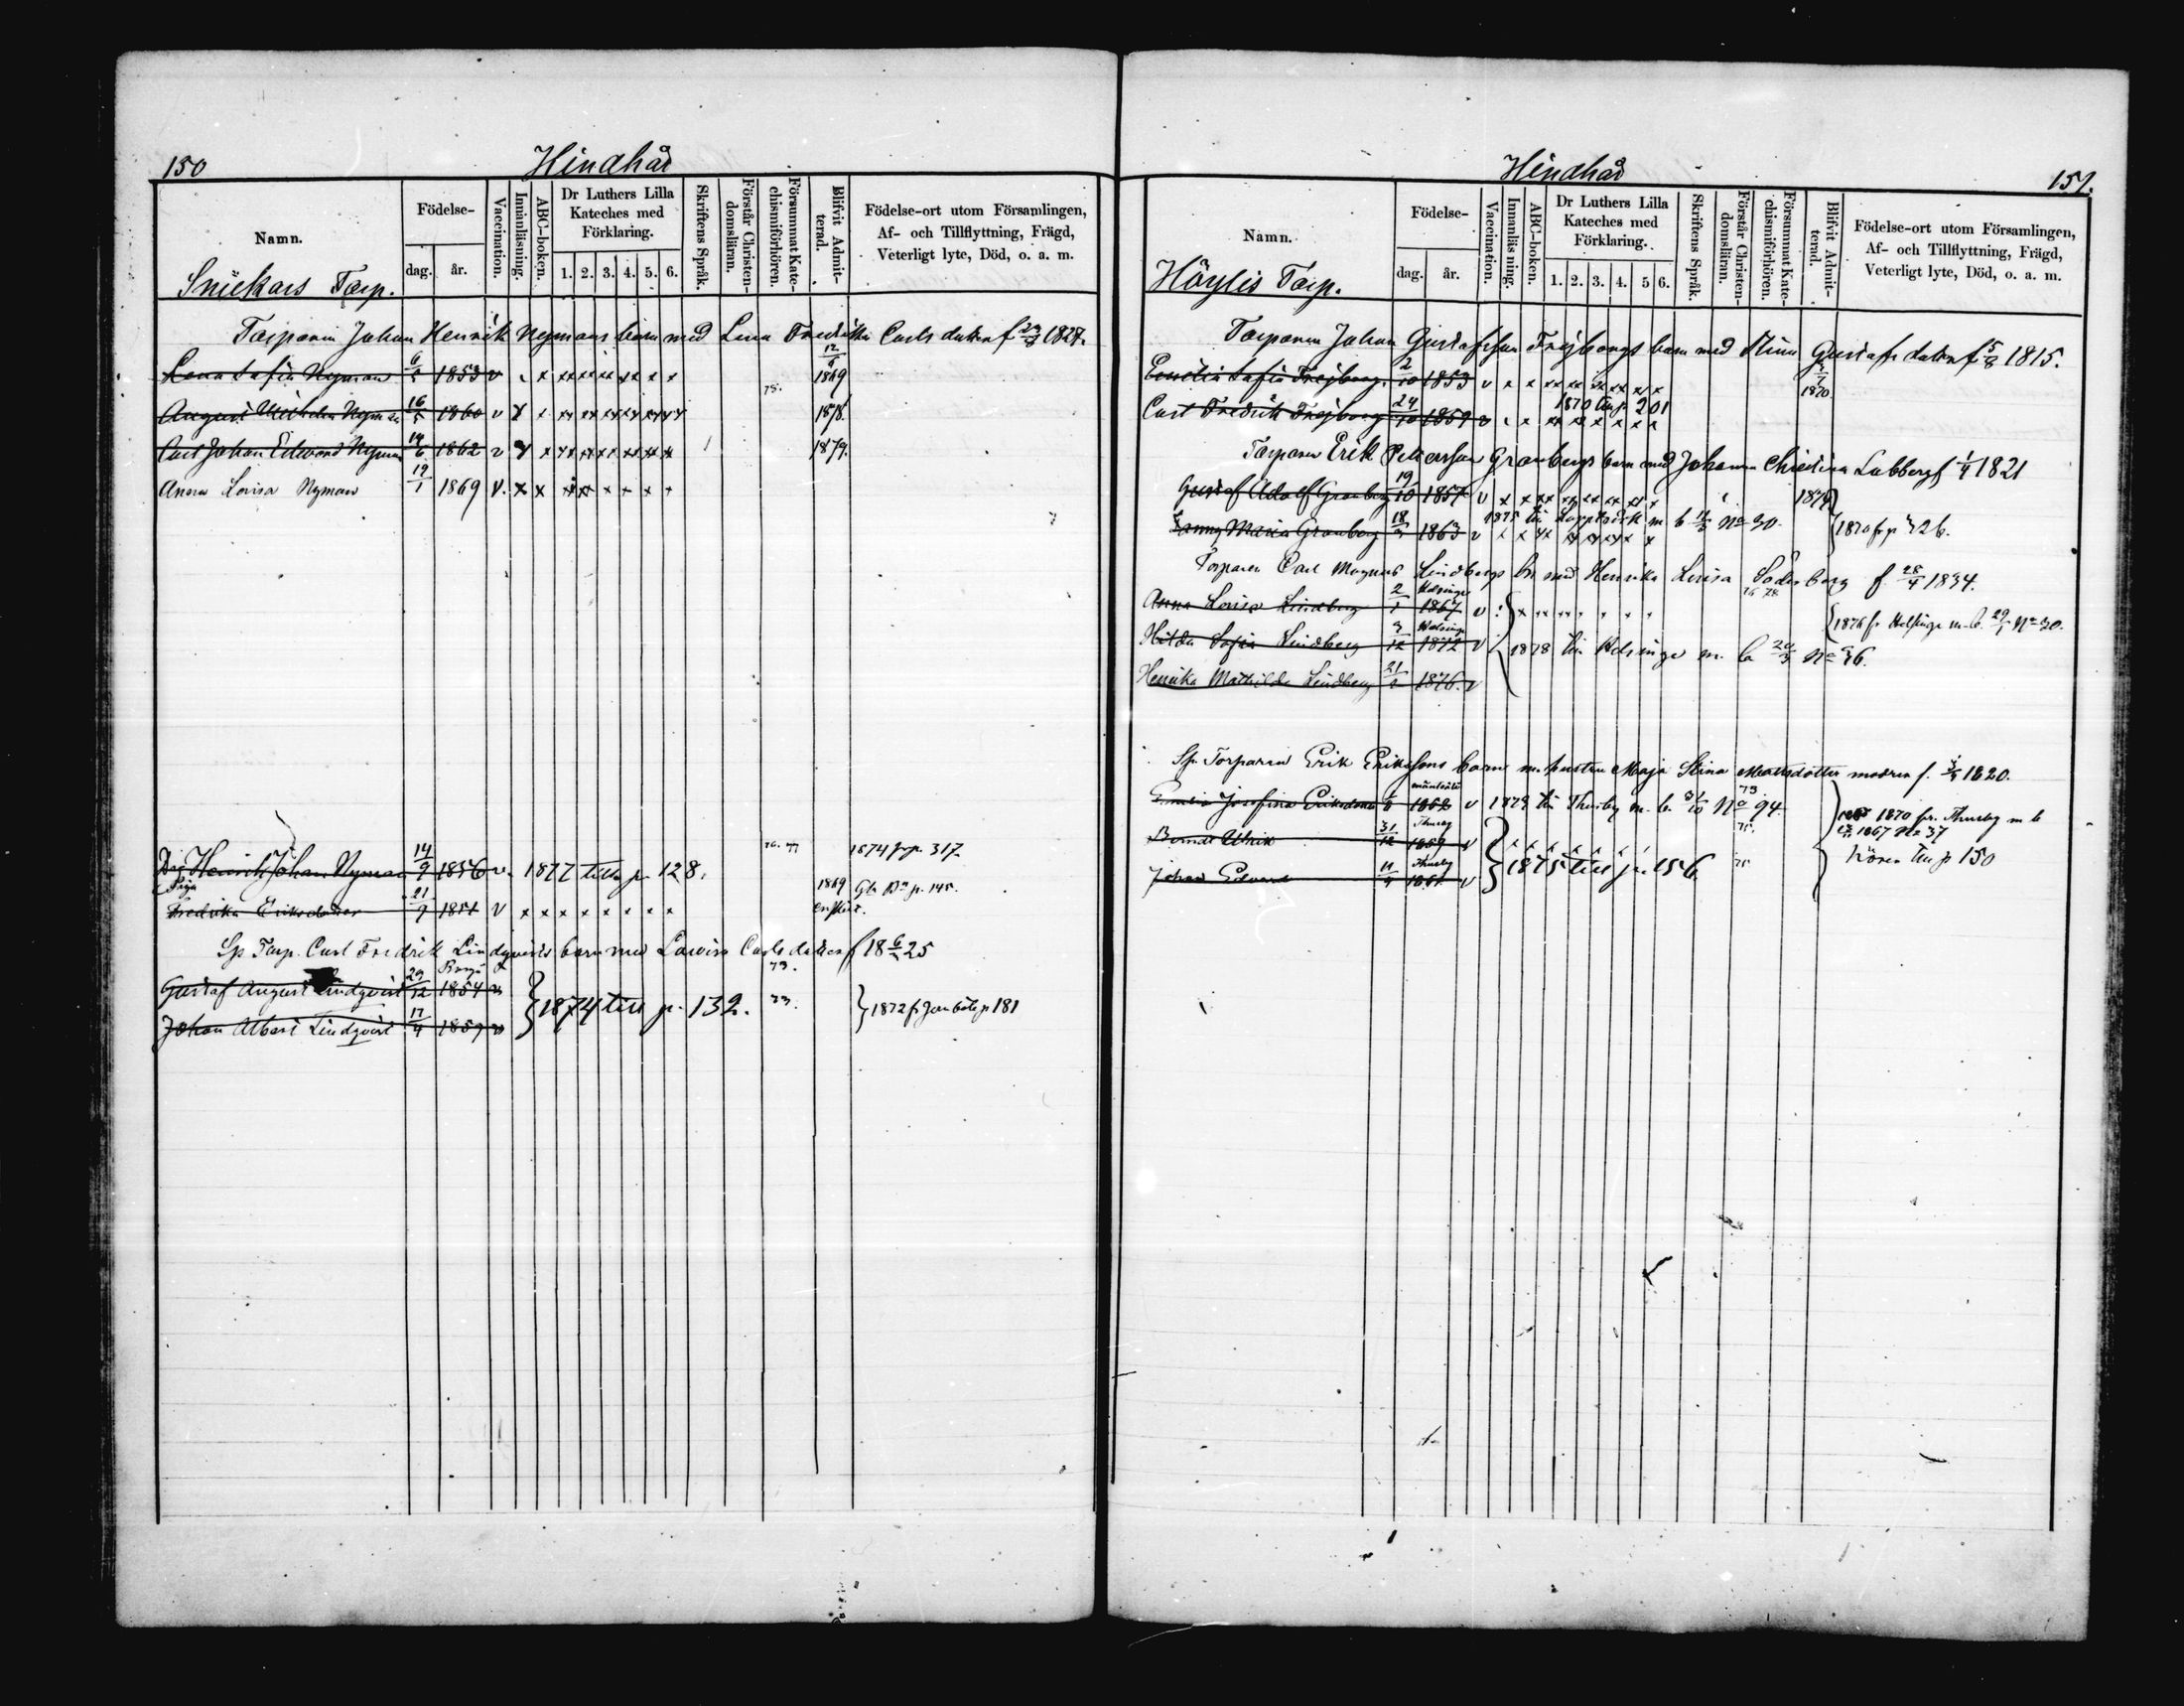 150
Hindhår
Namn.
Födelse-
dag. år.
Vaccination.
Innanläsning.
ABC-boken.
Dr Luthers Lilla Kateches med Förklaring.
1. 2. 3. 4. 5. 6.
Skriftens Språk.
Förstår Christendomsläran.
Försummat Katechismiförhören.
Blifvit Admitterad.
Födelse-ort utom Församlingen,
Af- och Tillflyttning, Frägd,
Veterligt lyte, Död, o. a. m.
Snickars Torp.
Torparen Johan Henrik Nymans barn med Lena Fredrika Carls dotter f 1827.
Lena Sofia Nyman 6/5 1853 v 75. 1869
August Wilhelm Nyman 16/5 1860 v 1878.
Carl Johan Edvard Nyman 14/6 1862 v 1879.
Anna Lovisa Nyman 19/1 1869 v.
Drg Henrik Johan Nyman 14/9 1856 v. 1877 till p. 128. 76. 77 1874 fr p. 317
Piga
Fredrika Eriksdotter 21/9 1851 v 1869 enskilt. Gb. Bn p. 145.
Sp Torp. Carl Fredrik Lindqvists barn med Lovisa Carls dotter f 18 6/5 25
Gustaf August Lindqvist 29/12 1854 v 73.
Johan Albert Lindqvist 17/4 1859 v } 1874 till p. 132. 73. } 1872 fr Jernböle p 181
Hindhår
151.
Namn.
Födelse-
dag. år.
Vaccination.
Innanläsning.
ABC-boken.
Dr Luthers Lilla Kateches med Förklaring.
1. 2. 3. 4. 5 6.
Skriftens Språk.
Förstår Christendomsläran.
Försummat Katechismiförhören.
Blifvit Admitterad.
Födelse-ort utom Församlingen,
Af- och Tillflyttning, Frägd,
Veterligt lyte, Död, o. a. m.
Höylis Torp.
Torparen Johan Gustafsson Frejborgs barn med Stina Gustafs dotter f 5/8 1815.
Emelia Sofia Frejborg. 2/10 1853 v 1870
Carl Fredrik Frejborg 24/10 1859 v 1870 till p. 201
Torparen Erik Pettersson Granbergs barn med Johanna Christina Lobberg f 1/4 1821
Gustaf Adolf Granberg 19/10 1857 v 1874
Fanny Maria Granberg 1863 v 1875 till Lappträsk m. b No 30. } 1870 fr p 326.
Torparen Carl Magnus Lindbergs bn med Henrika Lovisa Söderberg f. 28/4 1834.
Anna Lovisa Lindberg 2/1 Helsinge 1867 v { 1876 fr Helsinge m. b. 29/1 No 30.
Hilda Sofia Lindberg 3/12 Helsinge 1872 v { 1878 till Helsinge m. b 20/3 No 36.
Henrika Mathilda Lindberg 1876. v
Sp. Torparen Erik Erikssons barn m. hustru Maja Stina Mattsdotter modren f. 1820.
Emelia Josefina Eriksdotter 1862 v 1873 till Thusby m. b. 31/10 No 94. 73 } 1870 fr. Thusby m b 1867 No 37
Berndt Ulrik 31/12 Thusby 1859 v 75.
Johan Edvard 11/4 Thusby 1861 v } 1875 till p. 156. 75 } hören till p 150